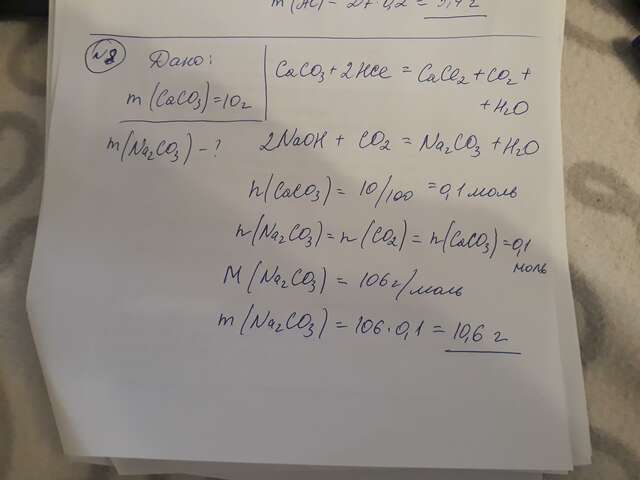 m(Al) = 27·0,2 = 5,4 г
№8 Дано:
m(CaCO₃)=10г
m(Na₂CO₃) - ?
CaCO₃ + 2HCl = CaCl₂ + CO₂ +
+ H₂O
2NaOH + CO₂ = Na₂CO₃ + H₂O
n(CaCO₃) = 10/100 = 0,1 моль
n(Na₂CO₃) = n(CO₂) = n(CaCO₃) = 0,1
моль
M(Na₂CO₃) = 106 г/моль
m(Na₂CO₃) = 106·0,1 = 10,6 г